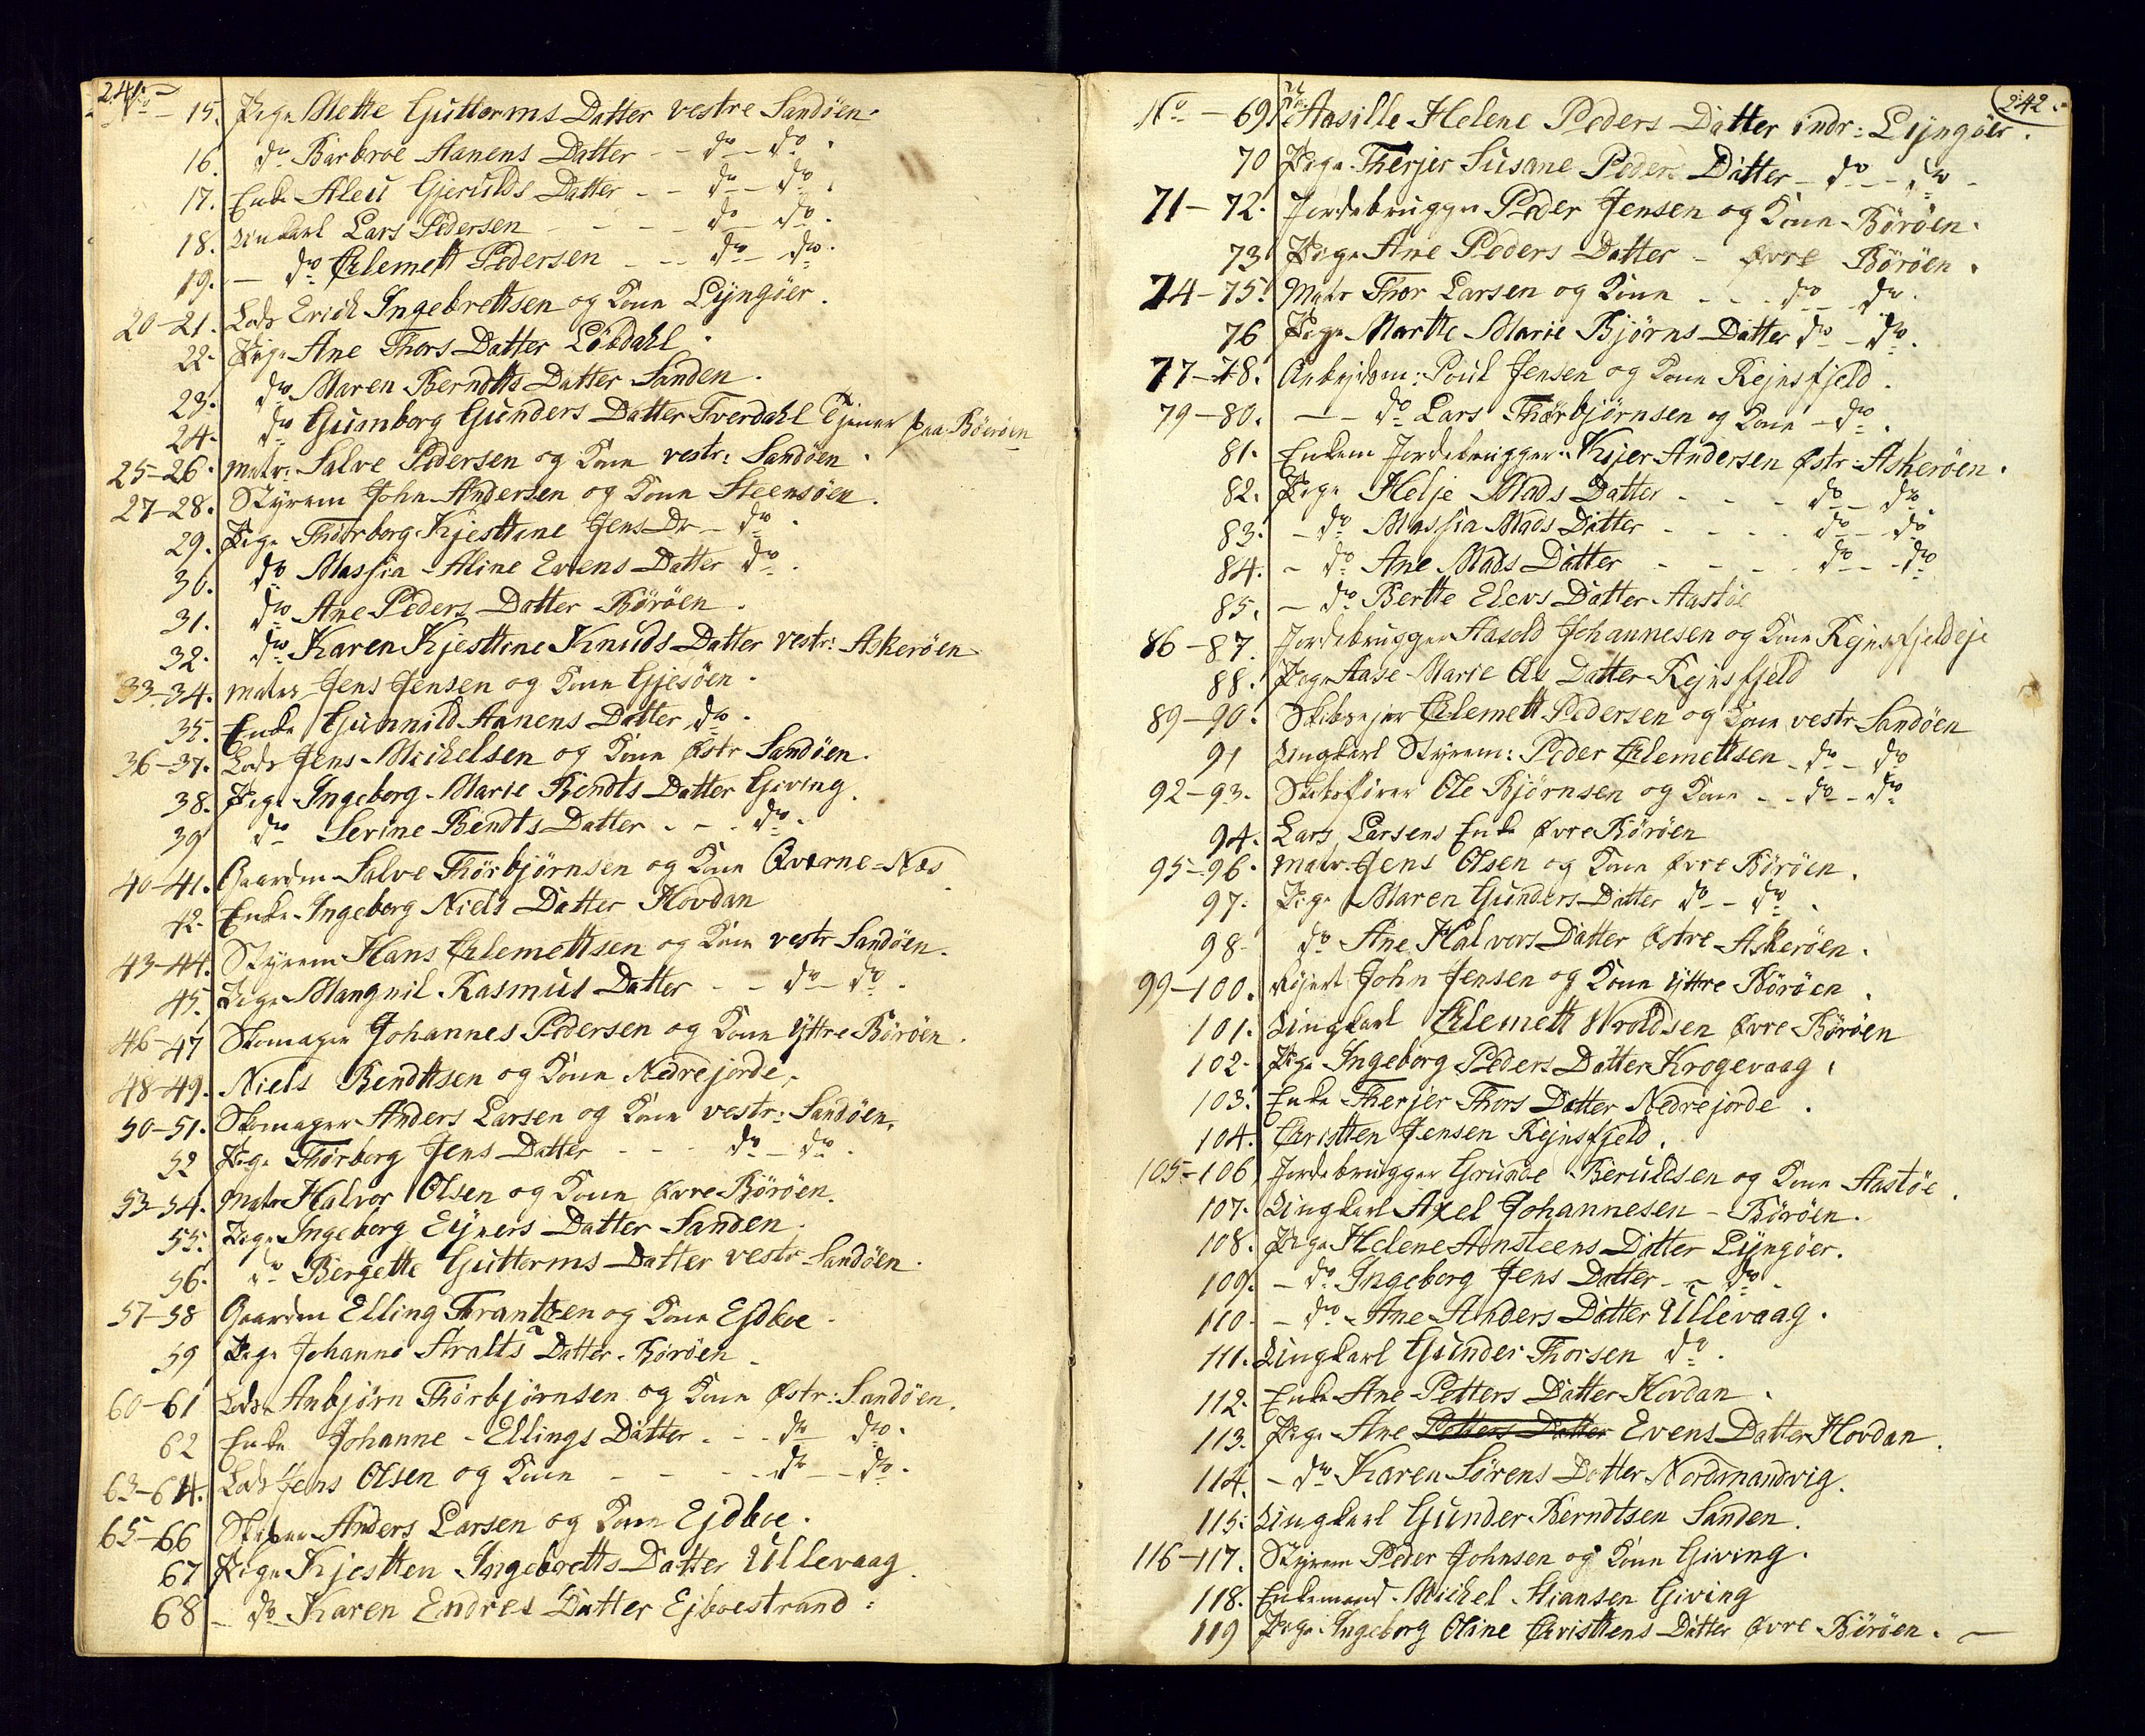 241.
No - 15. Pige Mette Guttorms Datter vestre Sandöen.
16. do Barbroe Aanens Datter - - do - do.
17. Enke Aleu Gjerulds Datter - - do - do.
18. Unkarl Lars Pedersen - - - - do - do.
19. - do Clemett Pedersen - - - do - do.
20-21. Lods Erich Ingebrettsen og Kone Lyngöer.
22. Pige Ane Thors Datter Löbdahl.
23. do Maren Berndtts Datter Sanden.
24. do Gumborg Gunders Datter Tverdahl tjener paa Böröen
25-26. Matr: Salve Pedersen og Kone vestr: Sandöen.
27-28. Styrem John Andersen og Kone Steensöen.
29. Pige Thorborg Kjesttine Jens Dr - do.
30. do Massia Aline Evens Datter do.
31. do Ane Peders Datter Böröen.
32. do Karen Kjesttine Knuds Datter vestr: Askeröen
33-34. Matr Jens Jensen og Kone Gjesöen.
35. Enke Gunnild Aanens Datter do.
36-37. Lods Jens Michelsen og Kone Østr Sandöen.
38. Pige Ingeborg Marie Bendts Datter Giving.
39 do Serine Bendts Datter - - do.
40-41. Gaardm Salve Thorbjørnsen og Kone Qverne-Næs
42. Enke Ingeborg Niels Datter Hovdan
43-44. Styrem Hans Clemettsen og Kone vestr Sandöen.
45. Pige Mangnil Rasmus Datter - - do - do.
46-47 Skomager Johannes Pedersen og Kone Yttre Böröen.
48-49. Niels Bendttsen og Kone Nedrejorde.
50-51. Skomager Anders Larsen og Kone vestr: Sandöen.
52 Pige Thorborg Jens Datter - - - do - do.
53-54. Matr Halvor Olsen og Kone Øvre Böröen.
55. Pige Ingeborg Ejners Datter Sanden.
56. do Bergette Gutterms Datter vestr Sandöen.
57-58 Gaardm Elling Frantzen og Kone Ejdboe.
59 Pige Johanne Aralts Datter Böröen
60-61 Lods Anbjørn Thorbjørnsen og Kone Østr: Sandöen.
62 Enke Johanne Ellings Datter - - do do.
63-64. Lods Jens Olsen og Kone - - - - do - do.
65-66 Skiper Anders Larsen og Kone Ejdboe.
67 Pige Kjestten Ingebretts Datter Ullevaag.
68 - do Karen Endres Datter Ejboestrand:
242.
No - 69 Pige Aasille Helene Peders Datter indr: Lyngöer.
70 Pige Therjer Susane Peders Datter - do - do -
71-72. Jordebrugger Peder Jensen og Kone Böröen.
73. Pige Ane Peders Datter - Øvre Böröen.
74-75. Matr Thor Larsen og Kone - - - do - do.
76 Pige Martte Marie Bjørns Datter do - do.
77-78. Arbejdsm: Poul Jensen og Kone Rejnsfjeld.
79-80. - - do Lars Thorbjørnsen og Kone - do.
81. Enkem Jordebrugger Kijer Andersen Østr: Askeröen.
82. Pige Helje Mads Datter - - - do - do
83. - do Massia Mads Datter - - - - do - do
84. - do Ane Mads Datter - - - - do - - do
85. - do Bertte Elevs Datter Aastöe
86-87. Jordebrugger Aasold Johannesen og Kone Rejnsfjeldeje
88. Pige Aase Marie Ols Datter Rejnsfjeld
89-90. Skibsejer Clemett Pedersen og Kone vestr Sandöen
91 Ungkarl Styrem: Peder Clemettsen - do - do
92-93. Skibsfører Ole Bjørnsen og Kone - - do - do
94. Lars Larsens Enke Øvre Böröen
95-96. Matr Jens Olsen og Kone Øvre Böröen.
97. Pige Maren Gunders Datter do - - do.
98. do Ane Halvors Datter Østre Askeröen.
99-100. John Jensen og Kone Yttre Böröen.
101. Ungkarl Clemett Wroldsen Øvre Böröen
102. Pige Ingeborg Peders Datter Krogevaag.
103. Enke Therjer Thors Datter Nedrejorde.
104. Christten Jensen Rejnsfjeld.
105-106 Jordebrugger Grunde Beruldsen og Kone Aastöe.
107. Ungkarl Axel Johannesen - Böröen.
108. Pige Helene Aansteens Datter Lyngöer.
109. - do Ingeborg Jens Datter - - do -
110. - do Ane Anders Datter Ullevaag.
111. Ungkarl Gunder Thorsen do.
112. Enke Ane Petters Datter Hovdan.
113. Pige Ane Petters Datter Evens Datter Hovdan.
114. - do Karen Sørens Datter Nordmandvig.
115. Ungkarl Gunder Berndtsen Sanden.
116-117. Styrem Peder Johnsen og Kone Giving.
118. Enkemand Michel Hansen Giving
119 Pige Ingeborg Oline Christtens Datter Øvre Böröen. -